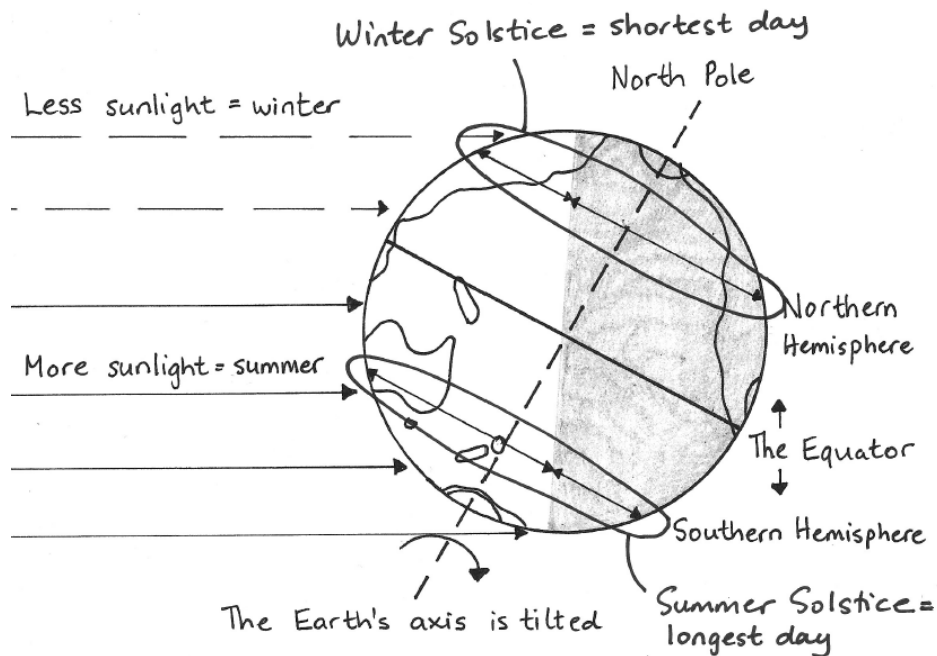 Winter Solstice = shortest day
North Pole
Less sunlight = winter
Northern
Hemisphere
More sunlight = summer
The Equator
Southern Hemisphere
The Earth's axis is tilted
Summer Solstice =
longest day